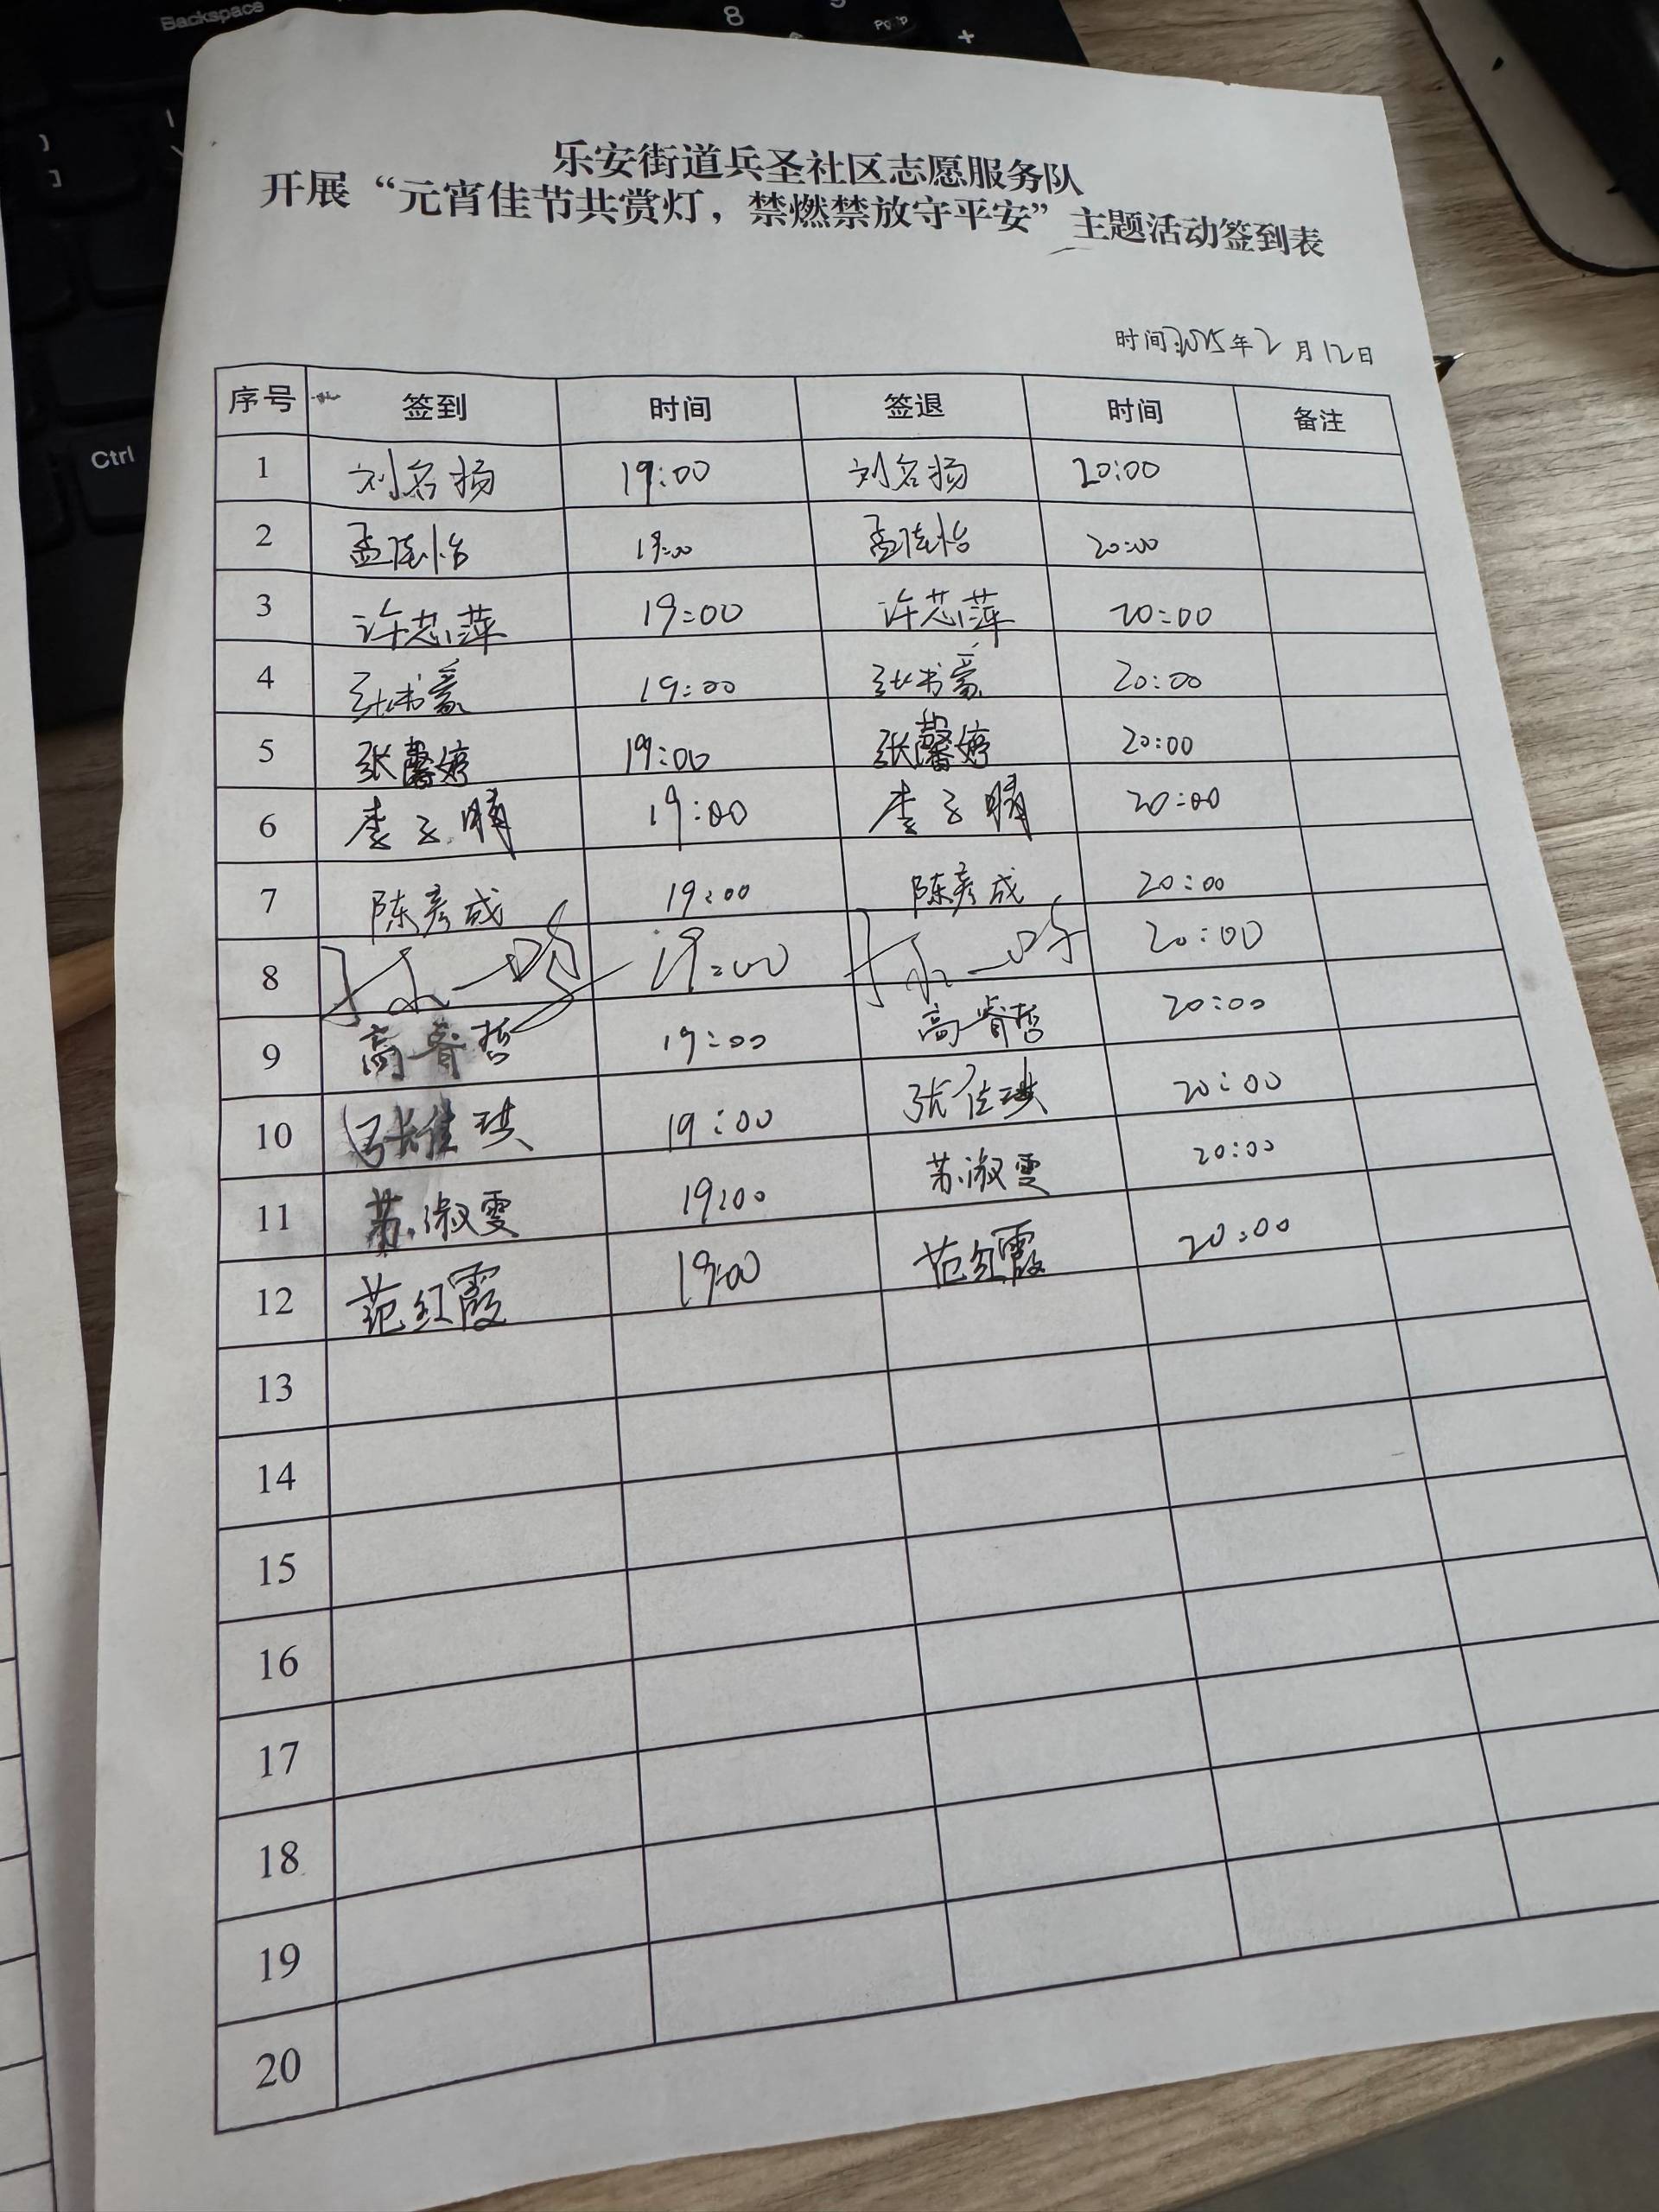 Backspace
8
9
PgUp
+
}
]
|
\
Ctrl
乐安街道兵圣社区志愿服务队
开展“元宵佳节共赏灯，禁燃禁放守平安”主题活动签到表
时间:2025年2月12日
序号 签到 时间 签退 时间 备注
1 刘名扬 19:00 刘名扬 20:00
2 孟佳怡 19:00 孟佳怡 20:00
3 许芯萍 19:00 许芯萍 20:00
4 张书豪 19:00 张书豪 20:00
5 张馨婷 19:00 张馨婷 20:00
6 李子晴 19:00 李子晴 20:00
7 陈彦成 19:00 陈彦成 20:00
8 19:00 20:00
9 高睿哲 19:00 高睿哲 20:00
10 张佳琪 19:00 张佳琪 20:00
11 苏淑雯 19:00 苏淑雯 20:00
12 范红霞 19:00 范红霞 20:00
13
14
15
16
17
18
19
20